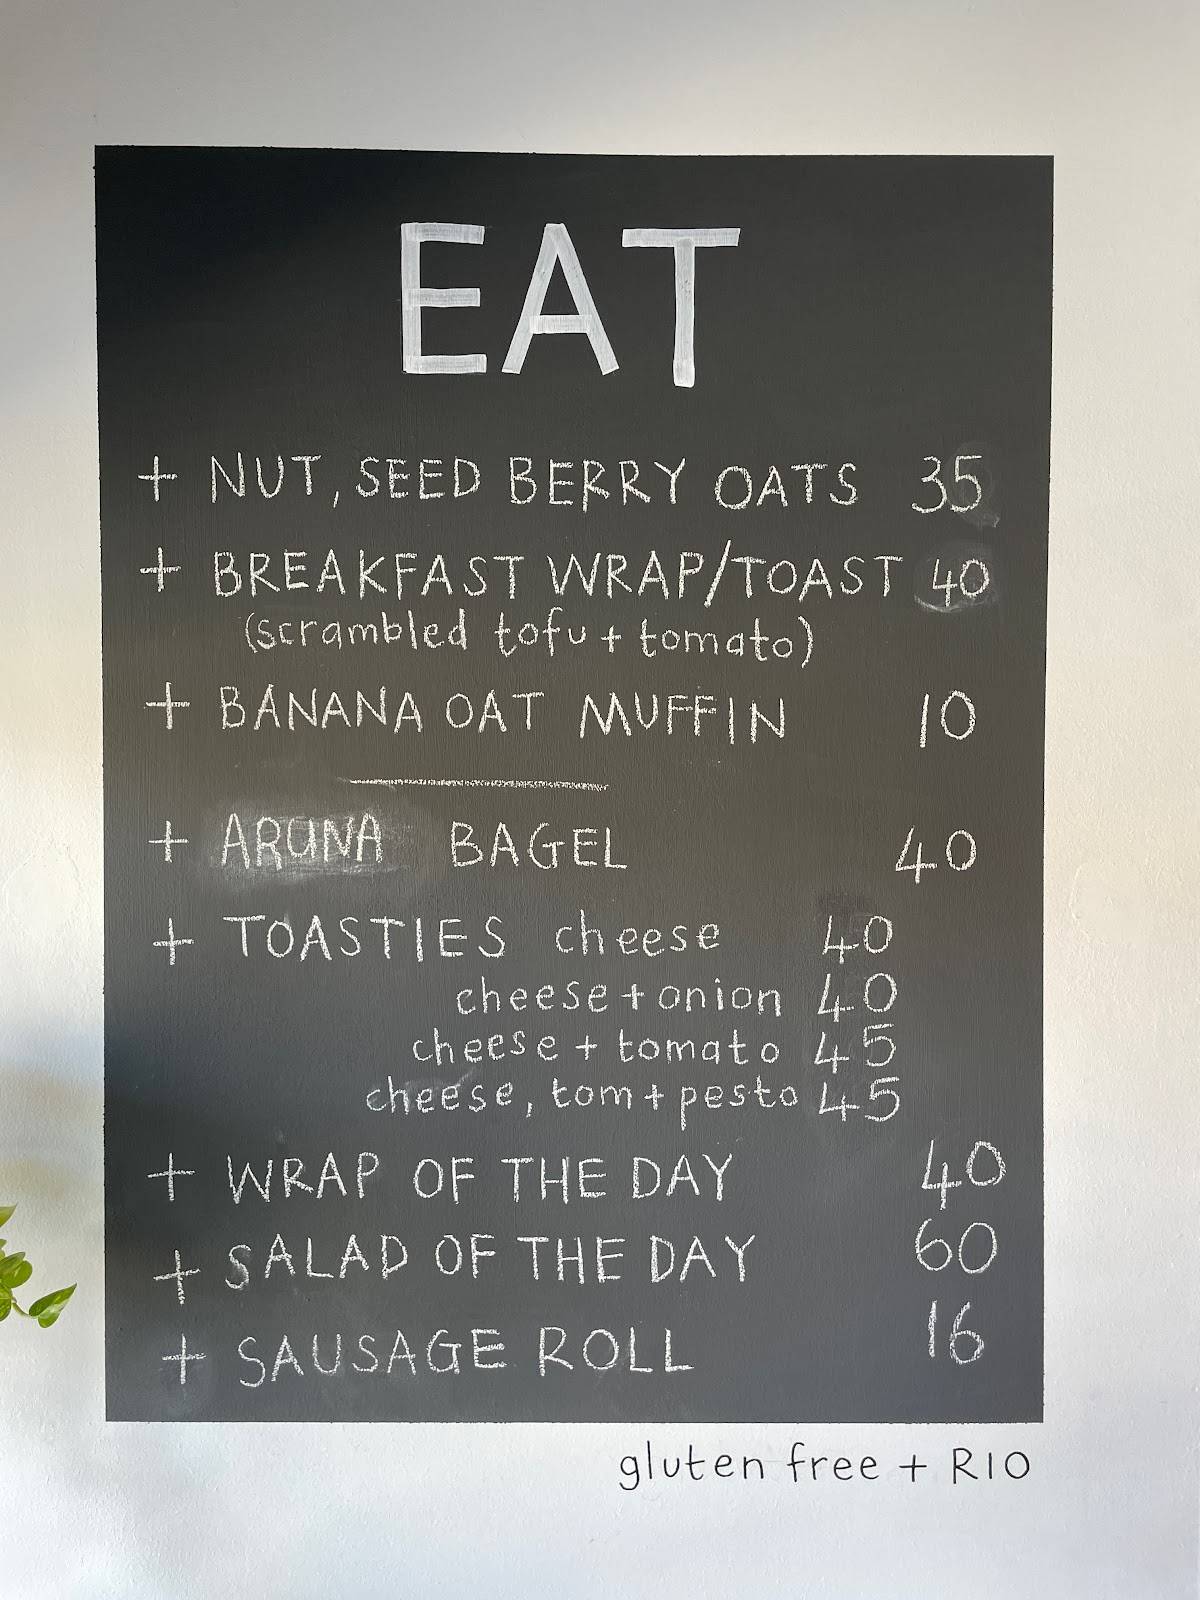 EAT
+ NUT, SEED BERRY OATS 35
+ BREAKFAST WRAP/TOAST 40
(scrambled tofu + tomato)
+ BANANA OAT MUFFIN 10
+ ARUNA BAGEL 40
+ TOASTIES cheese 40
cheese + onion 40
cheese + tomato 45
cheese, tom + pesto 45
+ WRAP OF THE DAY 40
+ SALAD OF THE DAY 60
+ SAUSAGE ROLL 16
gluten free + R10